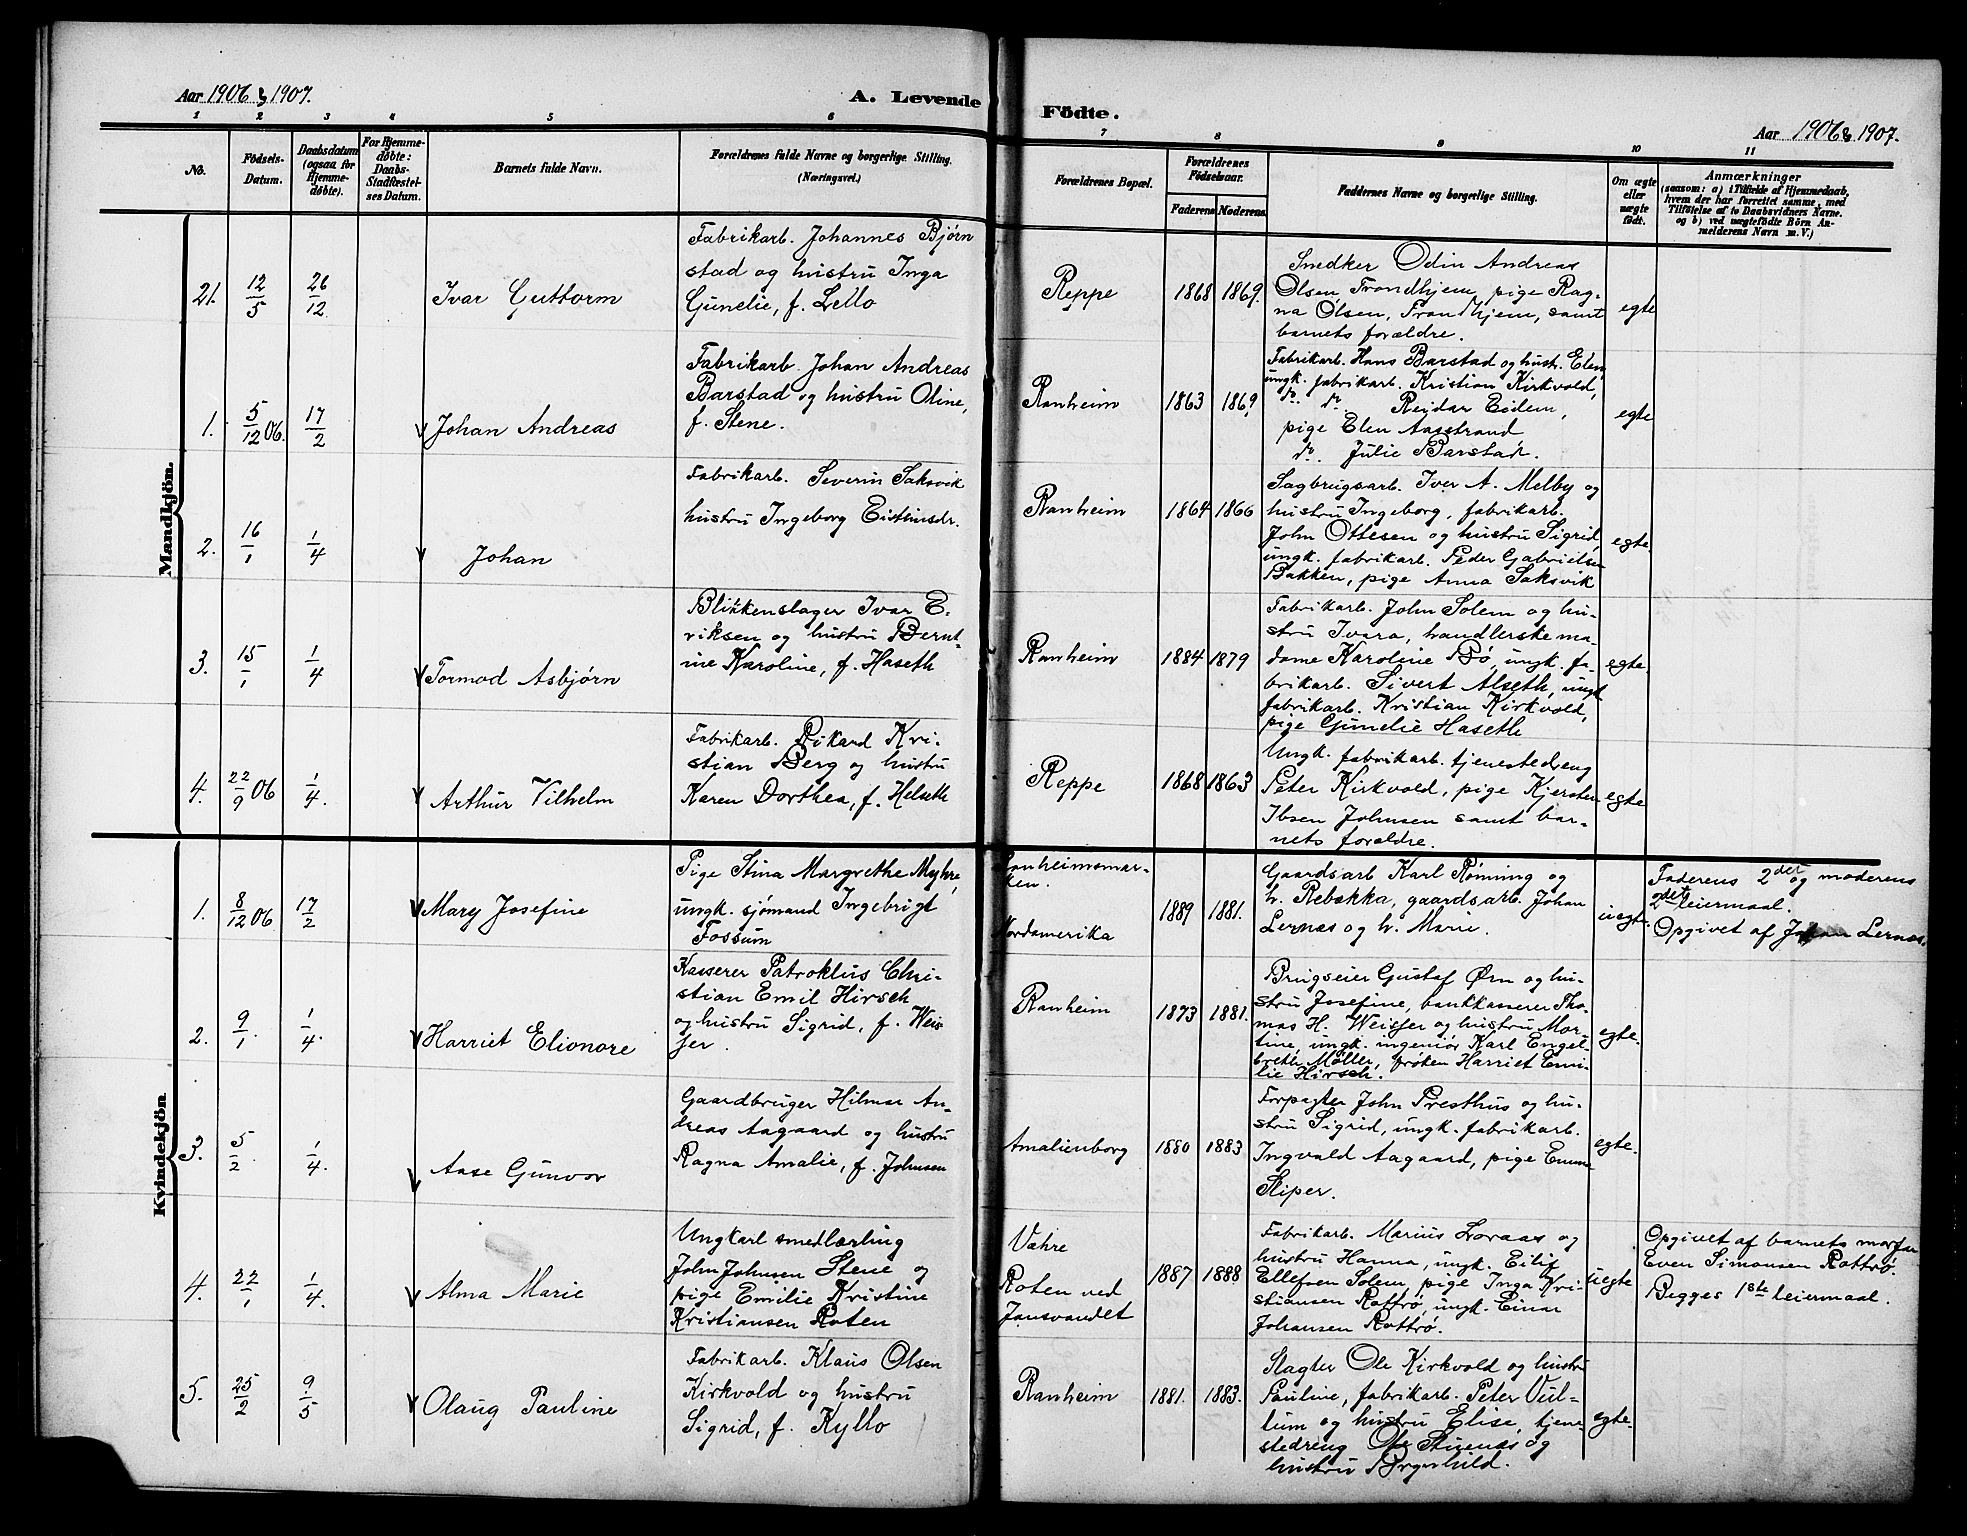 Aar 1906 & 1907.
A. Levende Födte.
Aar 1906 & 1907.
1 2 3 4 5 6 7 8 9 10 11
No.
Födsels-
Datum.
Daabsdatum
(ogsaa for
Hjemme-
døbte).
For Hjemme-
døbte:
Daabs-
Stadfæstel-
ses Datum.
Barnets fulde Navn.
Forældrenes fulde Navne og borgerlige Stilling.
(Næringsvei.)
Forældrenes Bopæl.
Forældrenes
Födselsaar.
Faderens. Moderens.
Faddernes Navne og borgerlige Stilling.
Om ægte
eller
uægte
født.
Anmærkninger
(saasom: a) i Tilfælde af Hjemmedaab,
hvem der har forrettet samme, med
Tilföielse af to Daabsvidners Navne.
og b) ved uægtefödte Börn An-
melderens Navn m. V.)
Mandkjön.
21. 12/5 26/12 Ivar Guttorm
Fabrikarb. Johannes Bjørn
stad og hustru Inga
Gunelie, f. Lello
Reppe 1868 1869.
Snedker Odin Andreas
Olsen, Trondhjem, pige Rag-
na Olsen, Trondhjem, samt
barnets forældre.
egte
1. 5/12 06. 17/2 Johan Andreas
Fabrikarb. Johan Andreas
Barstad og hustru Oline,
f. Stene.
Ranheim 1863 1869
Fabrikarb. Hans Barstad og hustr. Elen,
ungk. fabrikarb. Kristian Kirkvold,
do. do Reidar Eidem,
pige Elen Aasstrand
do. Julie Barstad.
egte
2. 16/1 1/4 Johan
Fabrikarb. Severin Saksvik
hustru Ingeborg
Ranheim 1864 1866
Sagbrugsarb. Iver A. Melby og
hustru Ingeborg, fabrikarb.
John Ottesen og hustru Sigrid,
ungk. fabrikarb. Peder Gabrielsen
Bakken, pige Anna Saksvik
egte.
3. 15/1 1/4 Tormod Asbjørn
Blikkenslager Ivar E-
riksen og hustru Bernt-
ine Karoline, f. Haseth
Ranheim 1884 1879
Fabrikarb. John Solem og hu-
stru Ivara, handlerske ma-
dame Karoline Bø, ungk. fa-
brikarb. Sivert Alseth, ungk
fabrikarb. Kristian Kirkvold,
pige Gunelie Haseth
egte.
4. 22/9 06 1/4. Arthur Vilhelm
Fabrikarb. Rikard Kri-
stian Berg og hustru
Karen Dorthea, f. Helseth
Reppe 1868 1863
Ungk. fabrikarb. tjenestedreng
Peter Kirkvold, pige Kjersten
Ibsen Johnsen samt bar-
nets forældre.
egte
Kvindekjön
1. 8/12 06 17/2 Mary Josefine
Pige Stina Margrethe Myhre,
ungk. sjømand Ingebrigt
Fossum
Ranheimsmar-
ken.
Nordamerika
1889 1881.
Gaardsarb Karl Rønning og
h. Rebekka, gaardsarb. Johan
Lernæs og h. Marie.
uegte.
Faderens 2det og moderens
2det leiermaal.
Opgivet af Johan Lernæs.
2. 9/1. 1/4. Harriet Elionore
Kasserer Patroklus Chri-
stian Emil Hirsch
og hustru Sigrid, f. Weis-
ser.
Ranheim 1873 1881.
Brugseier Gustaf Ørn og hu-
stru Josefine, bankkasserer Tho-
mas H. Weisser og hustru Mar-
tine, ungk. ingeniør Karl Engel-
breth Møller, frøken Harriet Emi-
lie Hirsch.
egte.
3. 5/2 1/4. Aase Gunvor
Gaardbruger Hilmar An-
dreas Aagaard og hustru
Ragna Amalie, f. Johnsen
Amalienborg 1880 1883
Forpagter John Presthus og hu-
stru Sigrid, ungk. fabrikarb.
Ingvald Aagaard, pige Emma
Sliper.
egte.
4. 22/1 1/4. Alma Marie
Ungkarl smedlærling
John Johnsen Stene og
pige Emilie Kristine
Kristiansen Roten
Væhre
Roten ved
Jonsvandet
1887 1888
Fabrikarb. Marius Loraas og
hustru Hanna, ungk. Eilif
Ellefsen Solem, pige Inga Kri-
stiansen Rottrø, ungk. Einar
Johansen Rottrø.
uegte
Opgivet af barnets morfar
Even Simonsen Rottrø.
Begges 1ste leiermaal.
5. 25/2 9/5 Olaug Pauline
Fabrikarb. Klaus Olsen
Kirkvold og hustru
Sigrid, f. Kyllo
Ranheim 1881. 1883.
Slagter Ole Kirkvold og hustru
Pauline, fabrikarb. Peter Vul-
lum og hustru Elise, tjene-
stedreng Ole Stuenæs og
hustru Borghild.
egte.